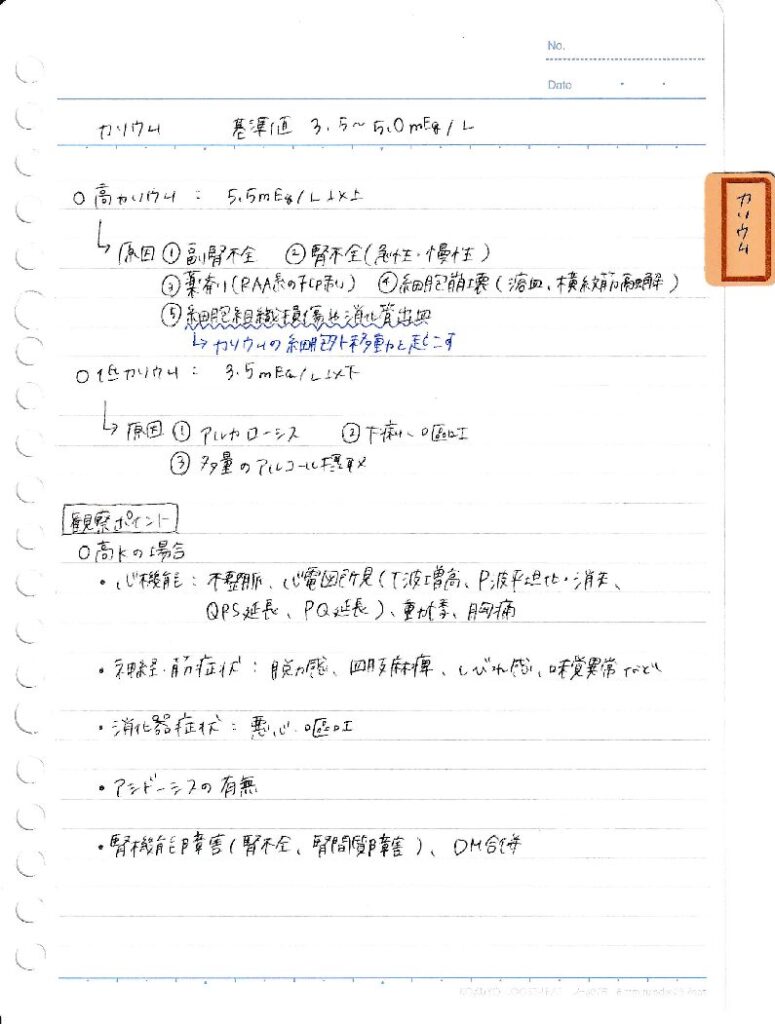 No.
Date
カリウム 基準値 3.5～5.0mEq/L
カリウム
○高カリウム : 5.5mEq/L以上
原因 ①副腎不全 ②腎不全(急性・慢性)
③薬剤(RAA系の抑制) ④細胞崩壊(溶血、横紋筋融解)
⑤細胞組織損傷や消化管出血
↳カリウムの細胞外移動を起こす
○低カリウム : 3.5mEq/L以下
原因 ① アルカローシス ②下痢、嘔吐
③ 多量のアルコール摂取
観察ポイント
○高Kの場合
・心機能 : 不整脈、心電図所見(T波増高、P波平坦化・消失、
QPS延長、PQ延長)、動悸、胸痛
・神経・筋症状 : 脱力感、四肢麻痺、しびれ感、味覚異常など
・消化器症状 : 悪心・嘔吐
・アシドーシスの有無
・腎機能障害(腎不全、腎間質障害)、DM合併